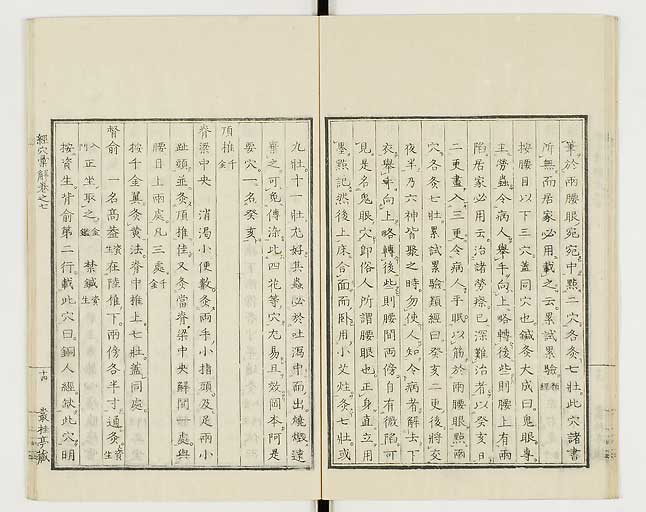 筆於兩腰眼宛宛中點二穴各灸七壯此穴諸書
所無而居家必用載之云累試累驗
按腰目以下三穴蓋同穴也鍼灸大成曰鬼眼專
主勞蟲令病人舉手向上略轉後些則腰上有兩
陷居家必用云治諸勞瘵已深難治者以癸亥日
二更盡入三更令病人平眠以筋於兩腰眼點兩
穴各灸七壯累試累驗類經曰癸亥二更後將交
夜半乃六神皆聚之時勿使人知令病者解去下
衣舉手向上略轉後些則腰間兩傍自有微陷可
見是名鬼眼穴即俗人所謂腰眼也正身直立用
墨點記然後上床合面而卧用小艾炷灸七壯或
九壯十一壯尤好其蟲必於吐瀉中而出燒燬遠
棄之可免傳染此四花等穴尤易且效岡本阿是
要穴一名癸亥
頂椎千金
脊梁中央 消渴小便數灸兩手小指頭及足兩小
趾頭並灸項椎佳又灸當脊梁中央解間一處與
腰目上兩處凡三處千金
按千金翼灸黃法脊中椎上七壯蓋同處
膂俞 一名高蓋資生在陸椎下兩傍各半寸通灸資生
入正坐取之金鑑 禁鍼資生
按資生背俞第二行載此穴曰銅人經缺此穴明
經穴彙解卷之七
十四
叢桂亭藏